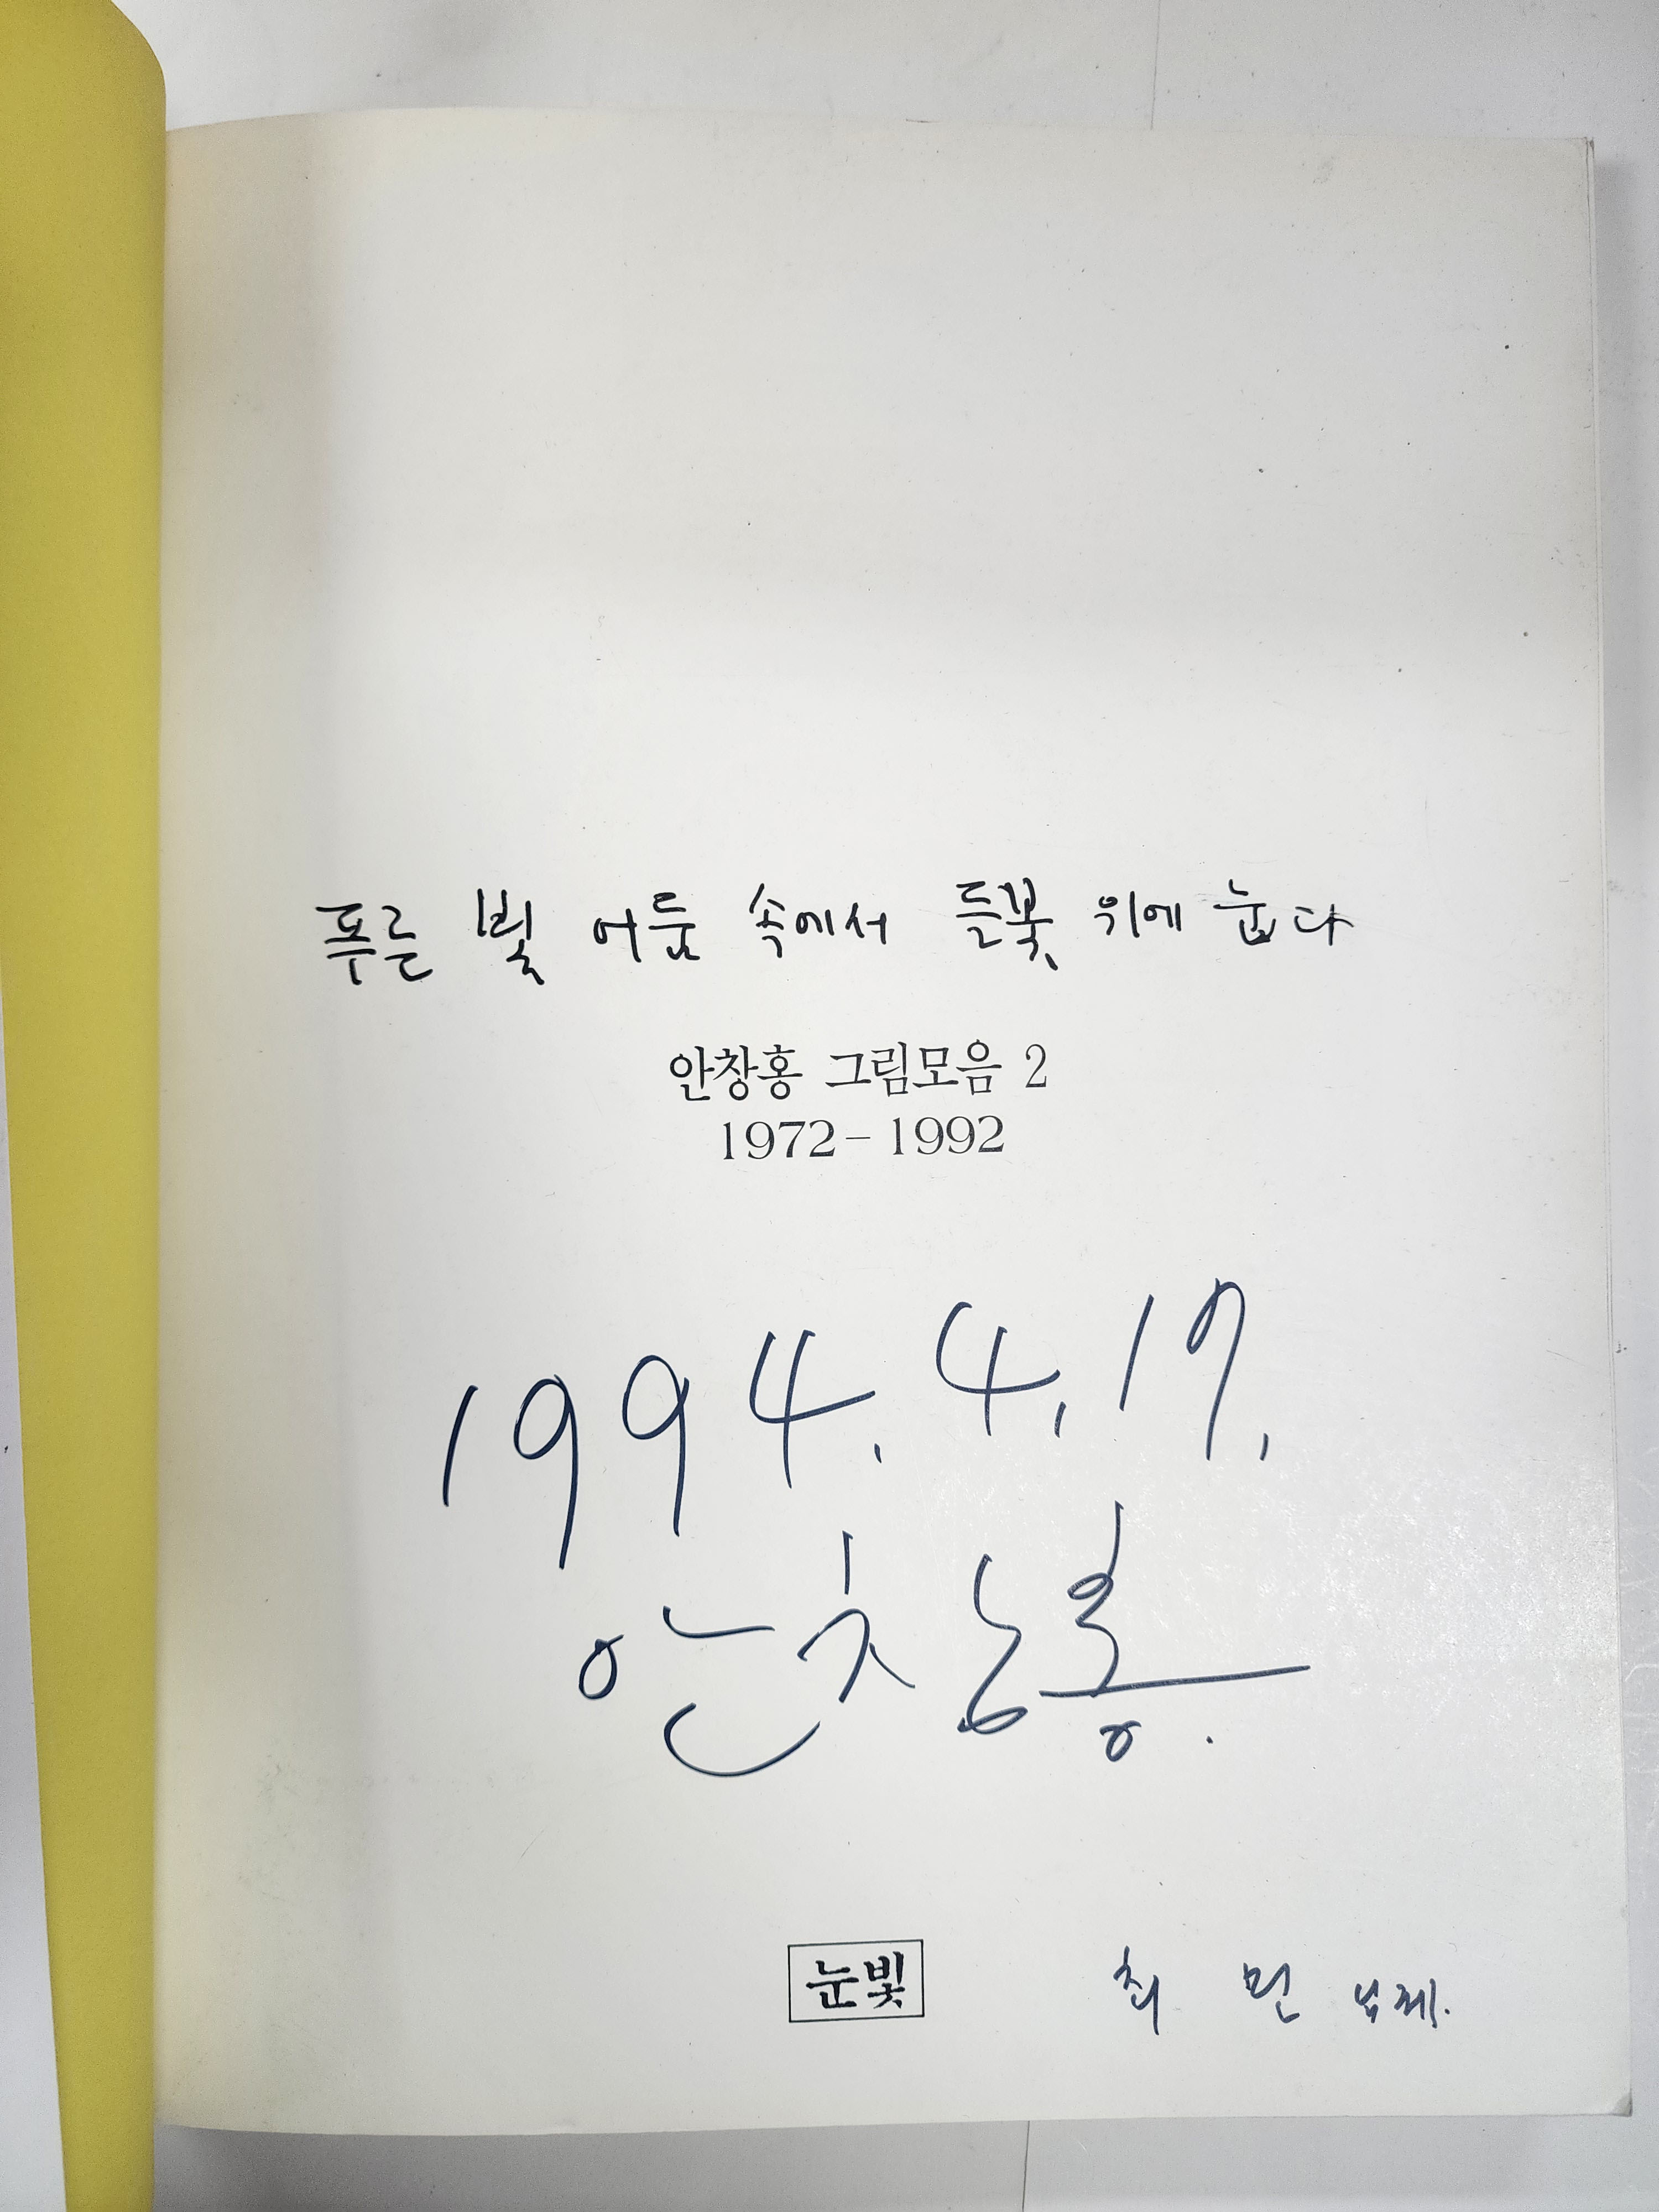 푸른 빛 어둠 속에서 들꽃 위에 눕다
안창홍 그림모음 2
1972-1992
1994. 4. 17.
안창홍.
눈빛
최 민 님께.